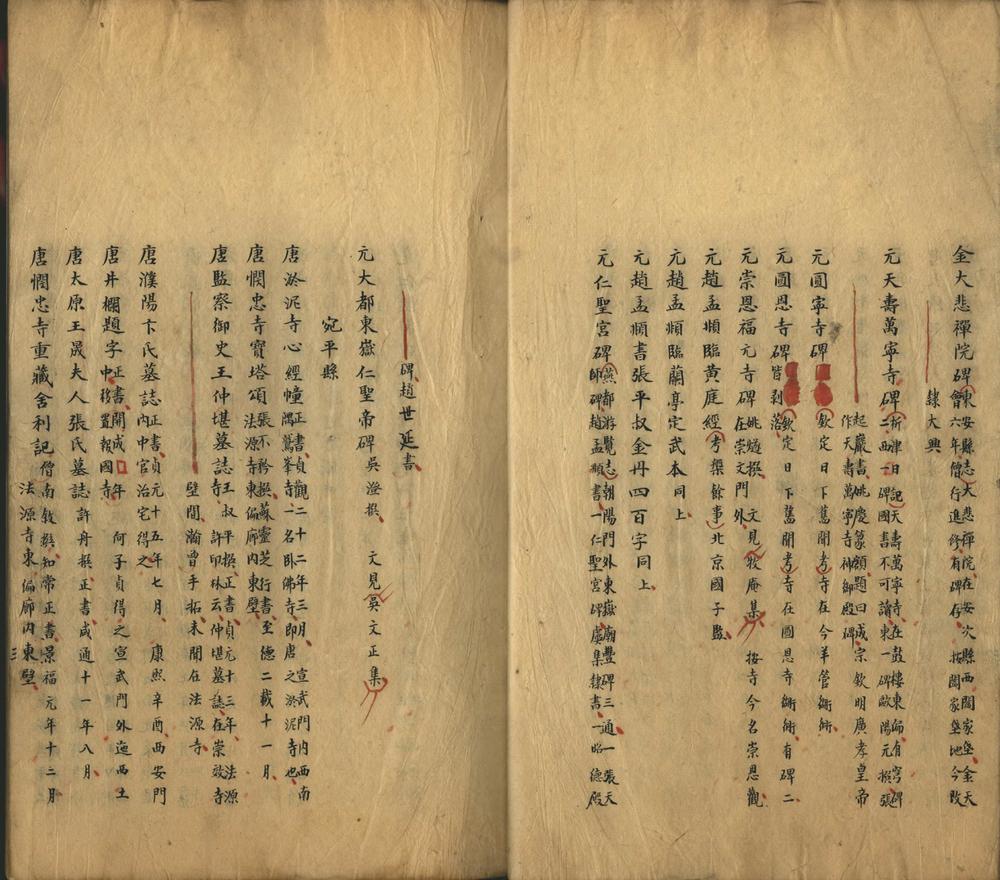 金大悲禪院碑東安縣志大悲禪院在安次縣西闊家堡金天
會六年僧行進修有碑存按闊家堡地今改
隸大興
元天壽萬寧寺碑析津日記天壽萬寧寺在鼓樓東偏有穹碑
二西一碑國書不可讀東一碑歐陽元撰張
起巖書姚慶篆額題曰成宗欽明廣孝皇帝
作天壽萬寧寺神御殿碑
元圓寧寺碑欽定日下舊聞考寺在今羊管衚衕
元圓恩寺碑皆剥落欽定日下舊聞考寺在圓恩寺衚衕有碑二
元崇恩福元寺碑姚燧撰文見牧庵集按寺今名崇恩觀
在崇文門外
元趙孟頫臨黃庭經考槃餘事北京國子監
元趙孟頫臨蘭亭定武本同上
元趙孟頫書張平叔金丹四百字同上
元仁聖宮碑燕都游覽志朝陽門外東嶽廟豐碑三通一張天
師碑趙孟頫書一仁聖宮碑虞集隸書一昭德殿
碑趙世延書
元大都東嶽仁聖帝碑吳澄撰文見吳文正集
宛平縣
唐淤泥寺心經幢正書貞觀二十二年三月宣武門内西南
隅鷲峯寺一名卧佛寺即唐之淤泥寺也
唐憫忠寺寶塔頌張不矜撰蘇靈芝行書至德二載十一月
法源寺東偏廊内東壁
唐監察御史王仲堪墓誌王叔平撰正書貞元十三年法源
寺許印林云仲堪墓誌在崇效寺
壁間瀚曾手拓未聞在法源寺
唐濮陽卞氏墓誌正書貞元十五年七月康熙辛酉西安門
内中官治宅得之
唐井欄題字正書開成口年何子貞得之宣武門外迤西土
中移置報國寺
唐太原王晟夫人張氏墓誌許舟撰正書咸通十一年八月
唐憫忠寺重藏舍利記僧南敘撰知常正書景福元年十二月
法源寺東偏廊内東壁
三